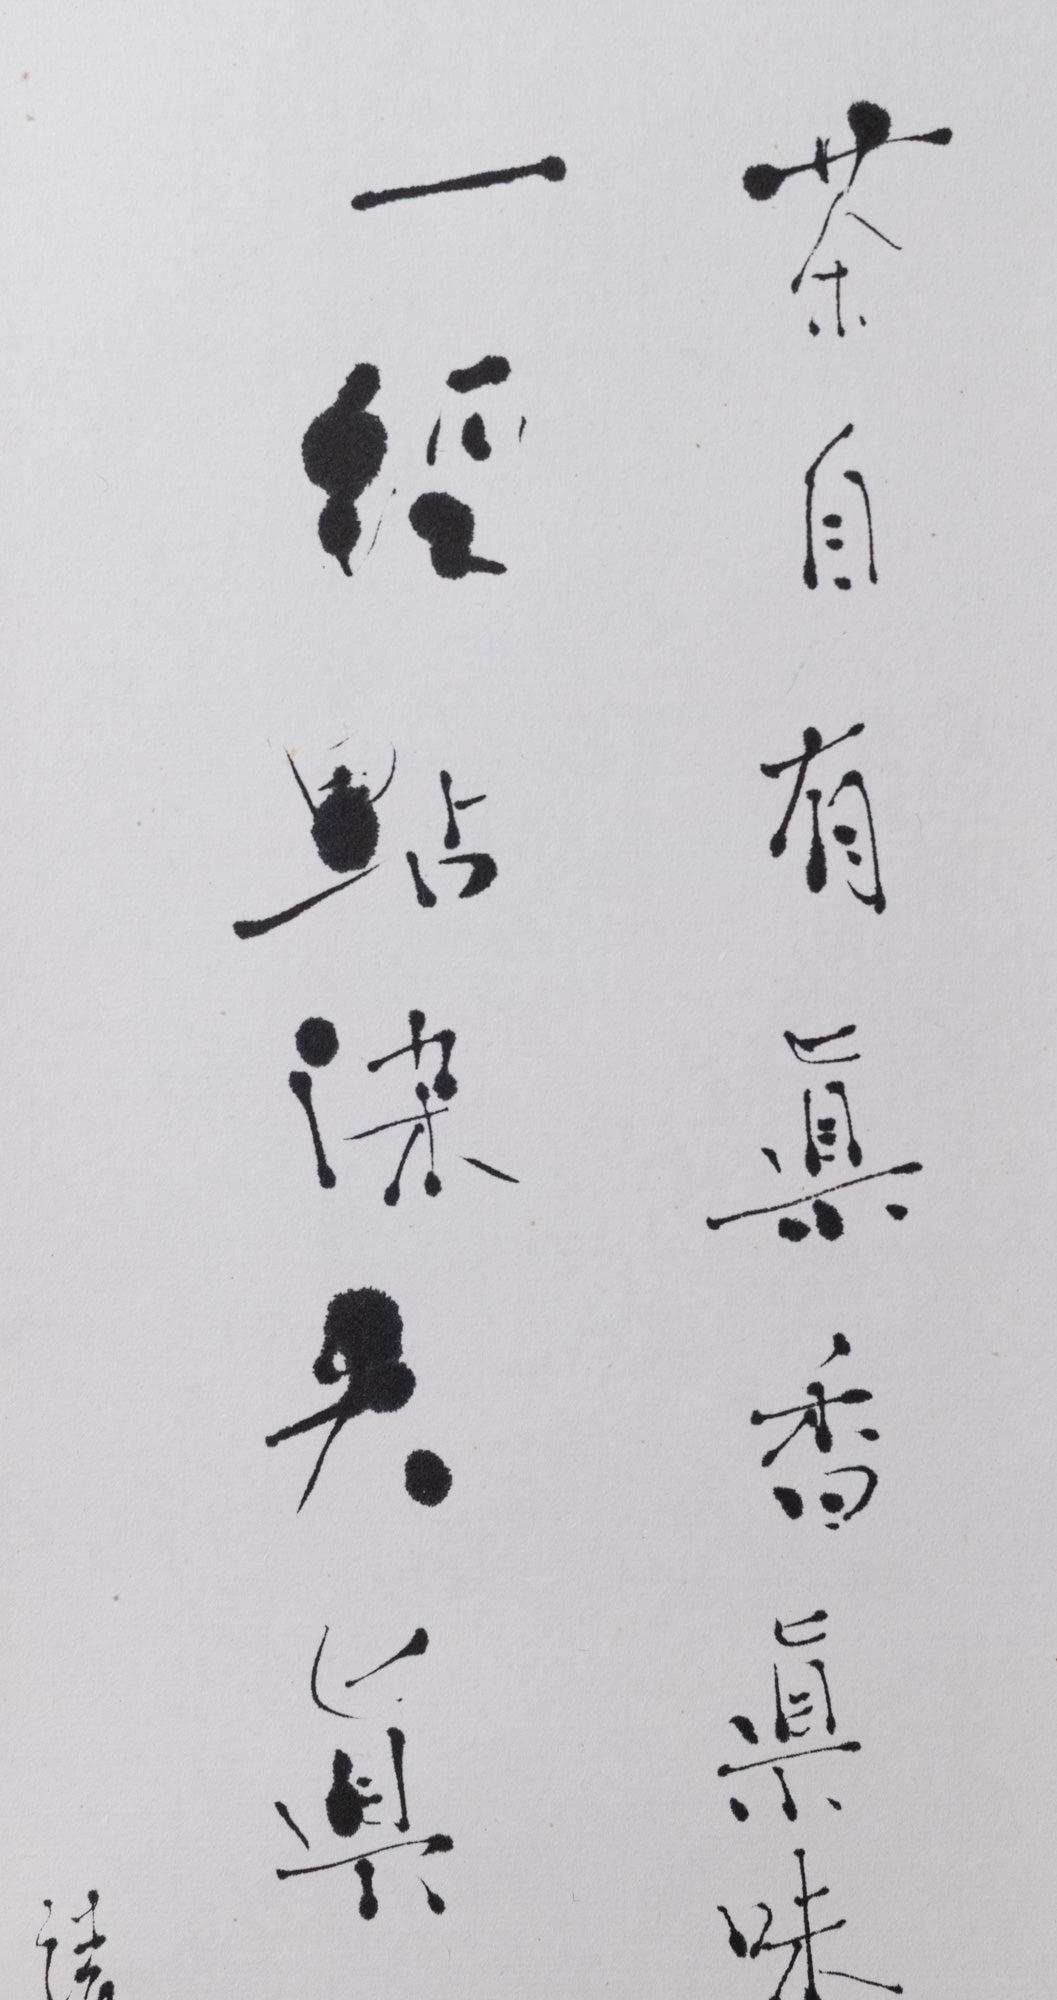 茶自有眞香眞味
一經點染失眞